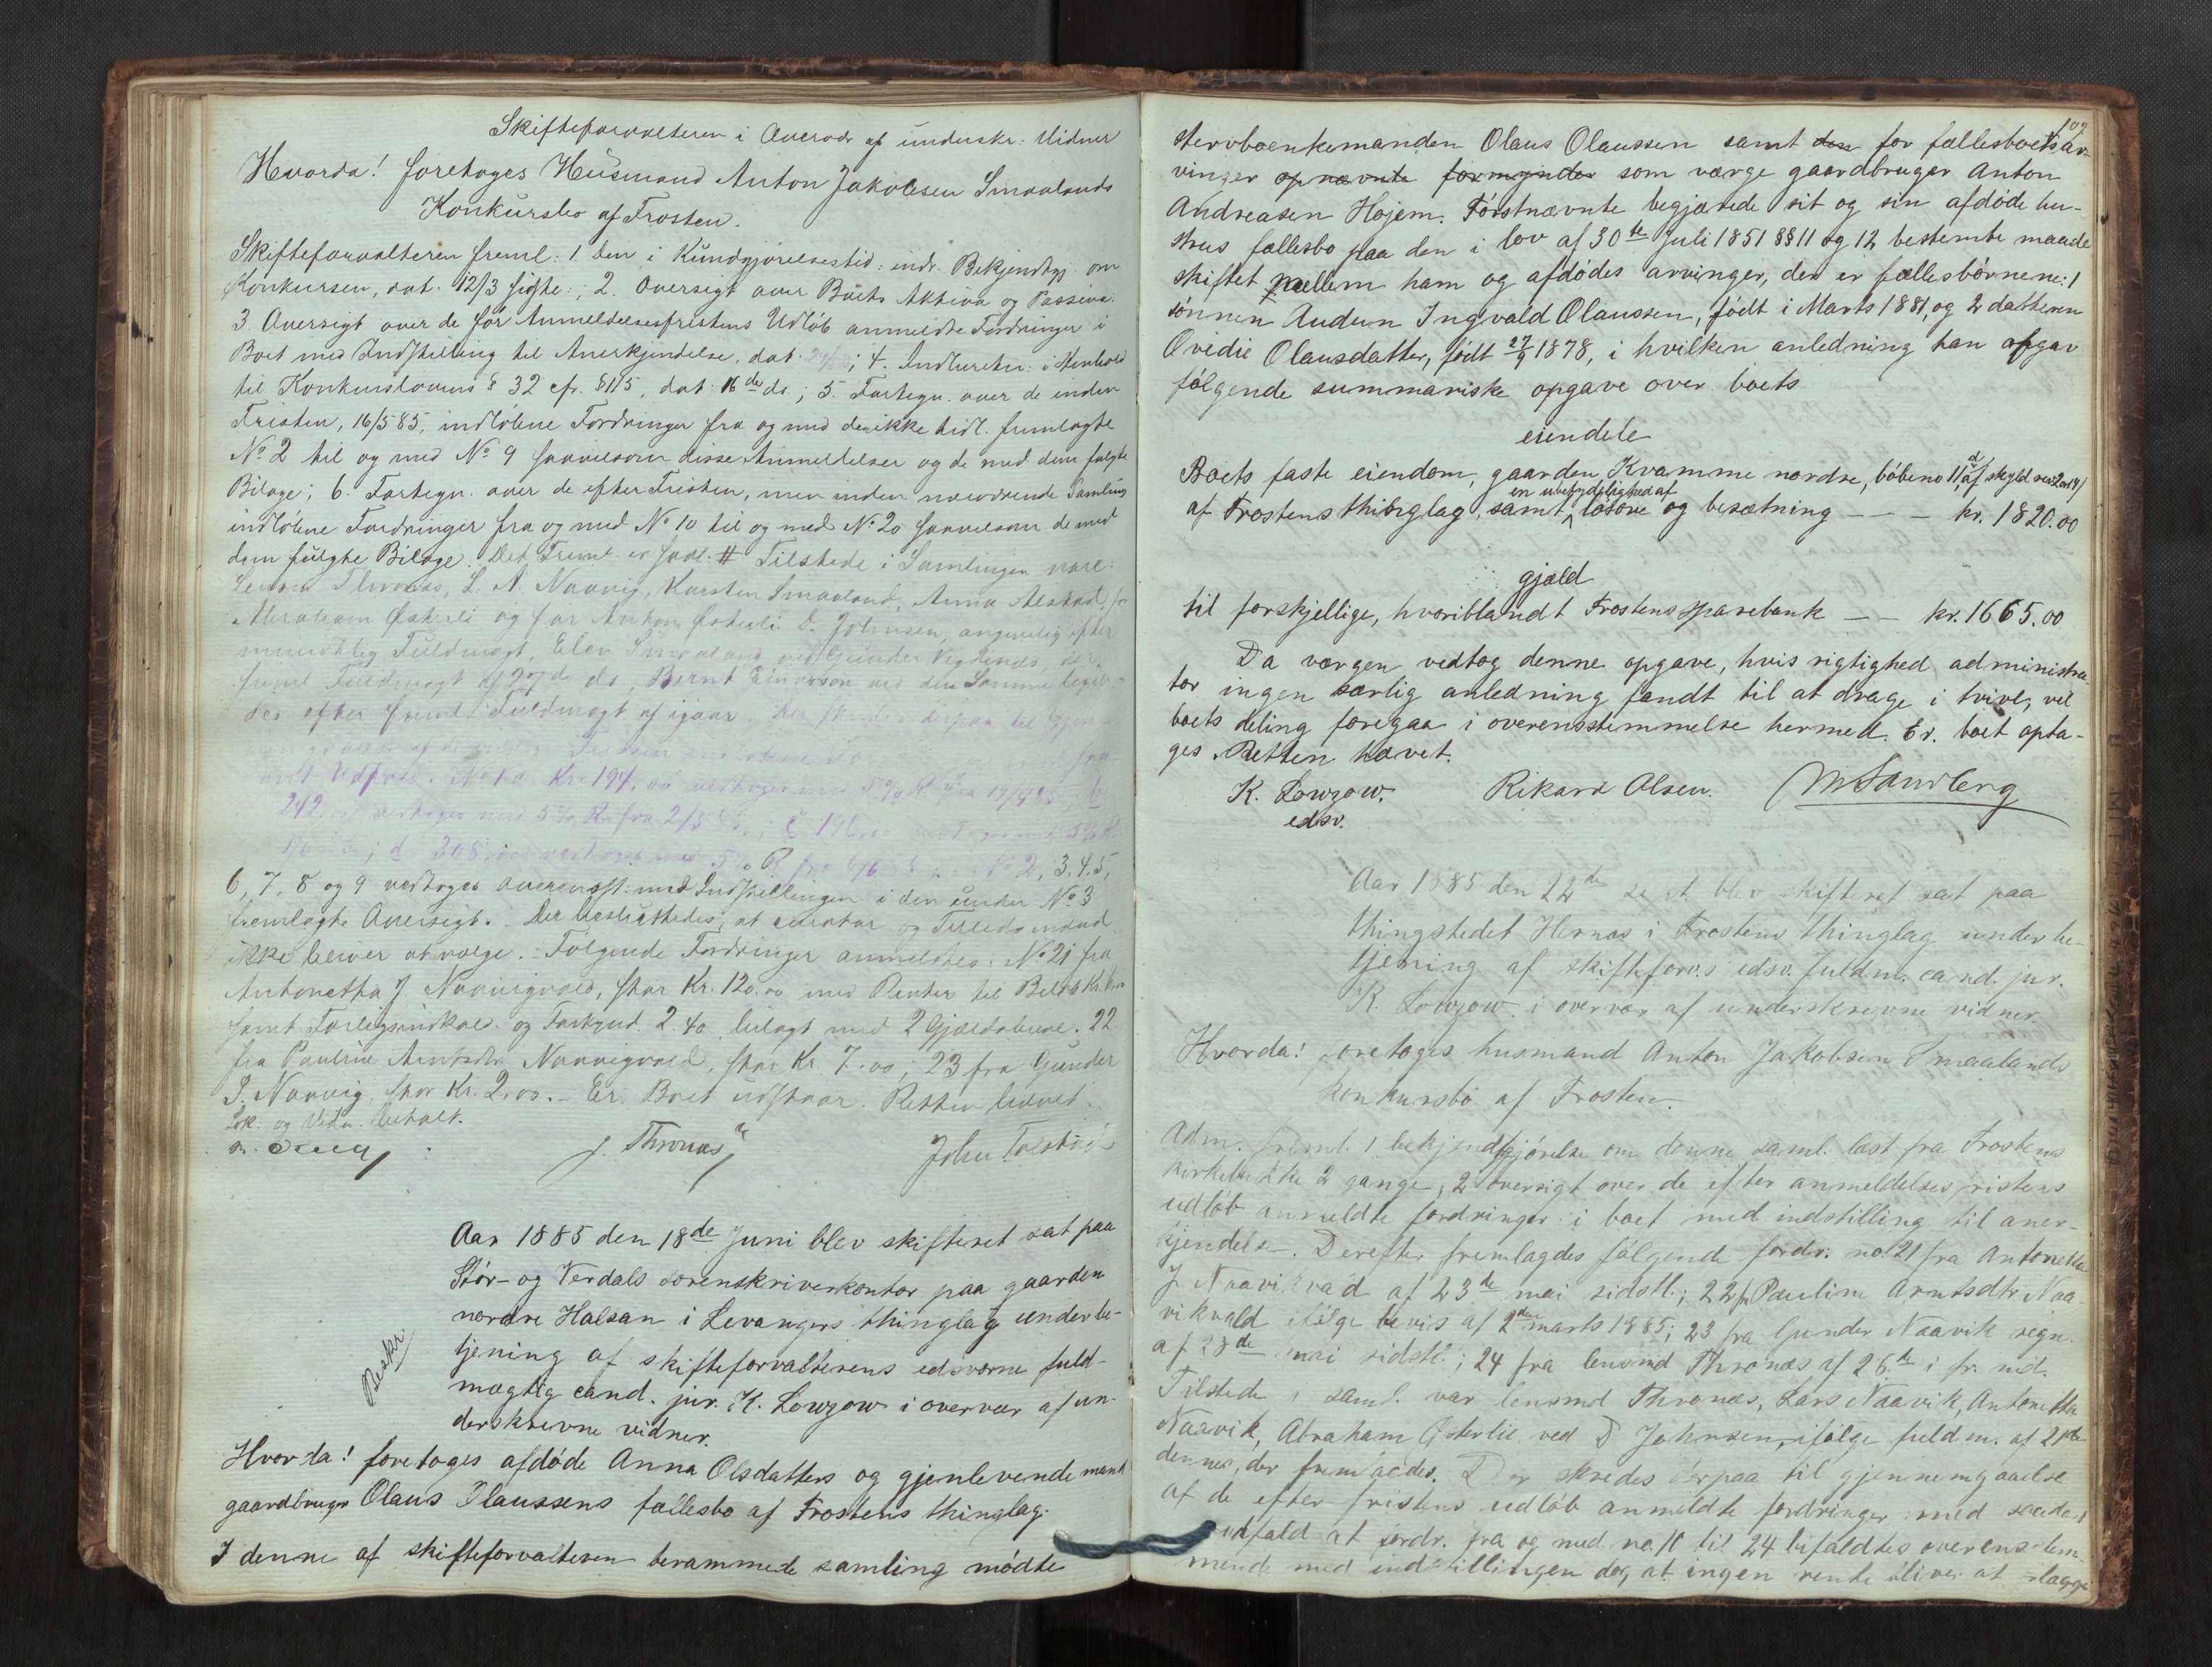 Skifteforvalteren i Overvær af underskr. Vidner
Hvorda! foretoges Husmand Anton Jakobsen Smaalands
Konkursbo af Frosten.
Skifteforvalteren freml: 1 den i Kundgjørelsestid: indr. Bekjendtgj. om
Konkursen, dat. 12/3 sidstl:, 2. Oversigt over Boets Aktiva og Passiva.
3. Oversigt over de før Anmeldelsesfristens Udløb anmeldte Fordringer i
Boet med Indstilling til Anerkjendelse, dat. ; 4. i Henhold
til Konkurslovens § 32 cfr. § 115, dat. 16de ds.; 5. Fortegn. over de inden
Fristen, 16/5 85, indløbne Fordringer fra og med de ikke tidl. fremlagte
No 2 til og med No 9 saavelsom disse Anmeldelser og de med dem fulgte
Bilage; 6. Fortegn. over de efter Fristen, men inden nærværende Samling
indløbne Fordringer fra og med No 10 til og med No 20 saavelsom de med
dem fulgte Bilage. Det Freml. er saal. # Tilstede i Samlingen vare:
Lensm Thronæs, L. A. Naavig, Karsten Smaaland, Anna Alstad, for
Abraham Østerli og for Anton Østerli D. Johnsen, angivelig efter
mundtlig Fuldmagt, Elen Smaaland ved Gunder Vigtenæs, der
freml Fuldmagt af 27de ds., Bernt Einarson ved den Samme ligele-
des efter freml. Fuldmagt af igaar. Der skredes derpaa til Gjen-
Udfald. No 1 a Kr. 194, vedtoges med 5% R. fra 17/4 85 b
242. vedtoges med 5% R. fra 2/5 c 196. vedtoges med 5% R.
d 308, vedtoges med 5% R. fra No 2, 3, 4, 5,
6, 7, 8 og 9 vedtoges overensst: med Indstillingen i den under No 3
fremlagte Oversigt. Der besluttedes, at curator og Tilledsmænd
ikke bliver at vælge. Følgende Fordringer anmeldtes: No 21 fra
Antonetha J. Naavigvald, stor Kr. 120.00 med Renter til Beløb Kr.
samt Forligsindkald. og Forkynd. 2.40 belagt med 2 Gjældsbreve. 22
fra Pauline Arntsdtr. Naavigvald, stor Kr. 7.00; 23 fra Gunder
J. Naavig, stor Kr. 2.00. Er. Boet udstaar. Retten hævet.
Lok. og Vidn. betalt.
J. Thronæs John Tolstad
Aar 1885 den 18de Juni blev skifteret sat paa
Stør- og Verdals sorenskriverkontor paa gaarden
nordre Halsan i Levangers thinglag under be-
tjening af skifteforvalterens edsvorne fuld-
mægtig cand. jur. K. Lowzow i overvær af un-
derskrevne vidner.
Beskr.
Hvorda! foretoges afdøde Anna Olsdatters og gjenlevende mand
gaardbruger Olaus Olaussens fællesbo af Frostens thinglag.
I denne af skifteforvalteren berammede samling mødte
109
stervboenkemanden Olaus Olaussen samt den for fællesboets ar-
vinger opnævnte formynder som værge gaardbruger Anton
Andreasen Hojem. Førstnævnte begjærede sit og sin afdøde hu-
strus fællesbo paa den i lov af 30te Juli 1851 §§ 11 og 12 bestemte maade
skiftet mellem ham og afdødes arvinger, der er fællesbørnene: 1
sønnen Audun Ingvald Olaussen, født i Marts 1881, og 2 datteren
Ovidie Olausdatter, født 27/9 1878, i hvilken anledning han afgav
følgende summariske opgave over boets
eiendele
Boets faste eiendom, gaarden Kvamme nordre, løbeno 11d, af skyld
af Frostens thinglag, samt en ubetydelighed af løsøre og besætning — — — kr. 1820.00
gjæld
til forskjellige, hvoriblandt Frostens sparebank — — kr. 1665.00
Da værgen vedtog denne opgave, hvis rigtighed administra-
tor ingen særlig anledning fandt til at drage i tvivl, vil
boets deling foregaa i overensstemmelse hermed. Er. boet opta-
ges. Retten hævet.
K. Lowzow. Rikard Olsen. M Sandberg
edsv.
Aar 1885 den 22de sept blev skifteret sat paa
thingstedet Hernæs i Frostens thinglag under be-
tjening af skifteforv.s edsv. fuldm. cand. jur.
K. Lowzow i overvær af underskrevne vidner.
Hvorda! foretoges husmand Anton Jakobsen Smaalands
konkursbo af Frosten.
Adm. freml. 1 bekjendtgjørelse om denne saml. læst fra Frostens
kirkebakke 2 gange, 2 oversigt over de efter anmeldelsesfristens
udløb anmeldte fordringer i boet med indstilling til aner-
kjendelse. Derefter fremlagdes følgende fordr: no. 21 fra Antonetha
J Naavikvald af 23de mai sidstl.; 22 fr. Pauline Arntsdtr Naa-
vikvald ifølge bevis af 2den marts 1885; 23 fra Gunder Naavik regn.
af 28de mai sidstl.; 24 fra lensmd Thronæs af 26de i fr. md.
Tilstede i saml. var lensmd Thronæs, Lars Naavik, Antonetha
Naavik, Abraham Østerlie ved D Johnsen, ifølge fuldm. af 21de
dennes, der fremlagdes. Der skredes derpaa til gjennemgaaelse
af de efter fristens udløb anmeldte fordringer med saadant
udfald at fordr. fra og med no. 10 til 24 bifaldtes overensstem-
mende med indstillingen dog at ingen rente bliver at tillægge